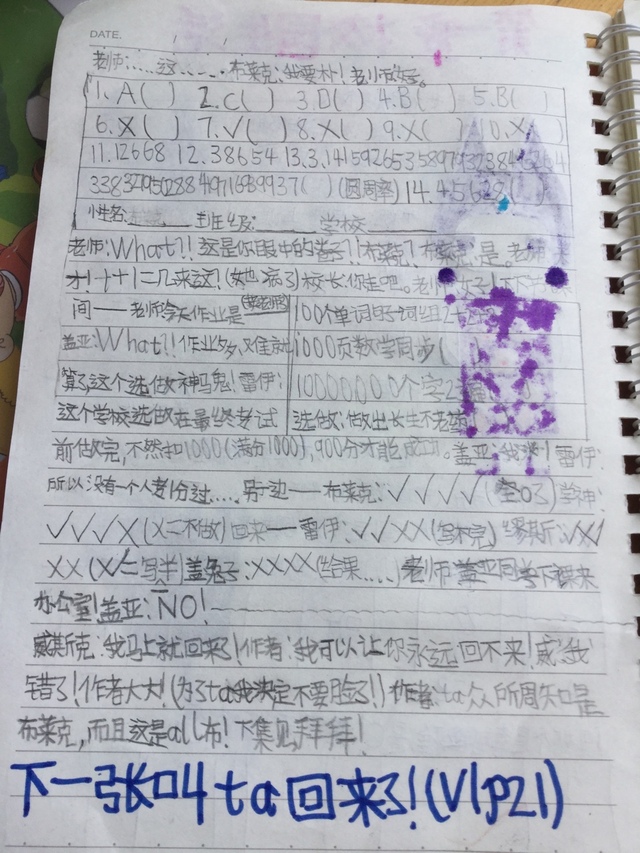 DATE.
老师:....这......布莱克:我要朴!老师:好。
1. A( ) 2. C( ) 3. D( ) 4. B( ) 5. B( )
6. X( ) 7. √( ) 8. X( ) 9. X( ) 10. X
11.12668 12.38654 13.3.1415926535897932384626
33832795028841971689937( )(圆周率)14.45628( )
姓名: 班级: 学校
老师:What?!这是你眼中的卷子?!布莱克?布莱克:是。老师
才!十十二几来这?(她病了)校长:你走吧。老师
间——老师:今天作业是 100个单词
盖亚:What?!作业多,难就 1000页数学同步(
算了,这个选做神马鬼!雷伊: 10000000个字
这个学校选做在最终考试 选做:做出长生不老
前做完,不然扣1000(满分1000),900分才能成功。盖亚:我 雷伊:
所以没有一个人考1分过....另一边——布莱克:√√√√(全对了)
√√√X(X=不做)回来——雷伊:√√XX(写不完)缪斯:√X
XX(X=写半)盖兔子:XXXX(结果....)老师:盖亚同学下课来
办公室!盖亚:NO!
威斯克:我马上就回来了!作者:我可以让你永远回不来!威:我
错了!作者大大!(为了ta我决定不要脸了!)作者:ta众所周知是
布莱克,而且这是all布!下集见,拜拜!
下一张叫ta回来了!(V1p21)